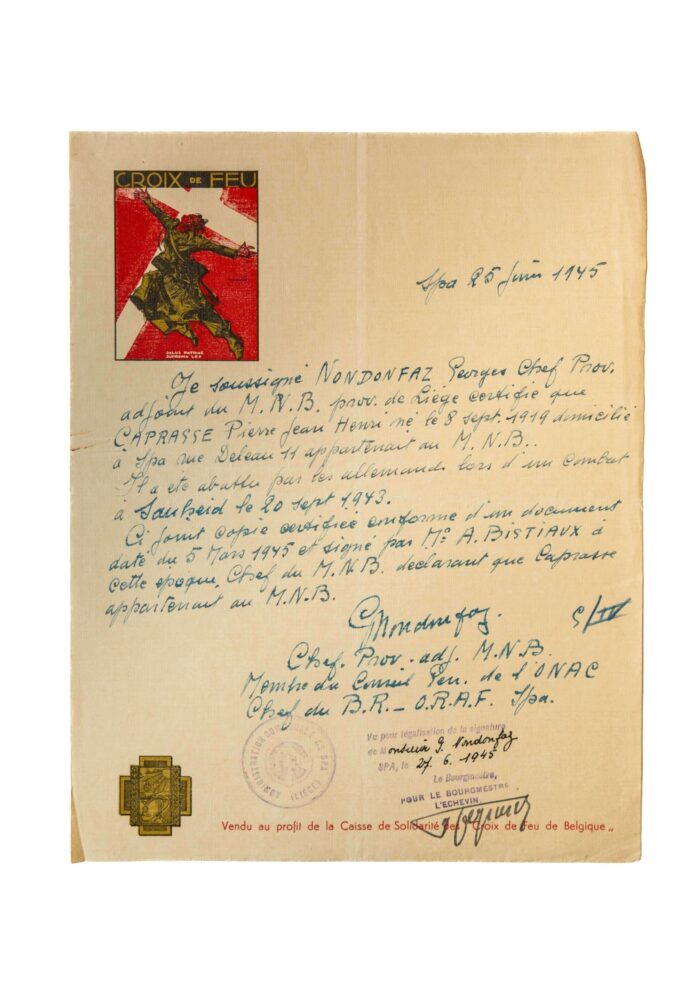 CROIX DE FEU
SALUS PATRIAE
SUPREMA LEX
Spa 25 juin 1945
Je soussigné NONDONFAZ Georges Chef Prov.
adjoint du M.N.B. prov. de Liège certifie que
CAPRASSE Pierre Jean Henri né le 8 sept. 1919 domicilié
à Spa rue Deleau 11 appartenait au M.N.B..
Il a été abattu par les allemands lors d'un combat
à Sauheid le 20 sept 1943.
Ci joint copie certifiée conforme d'un document
daté du 5 Mars 1945 et signé par Mr A. BISTIAUX à
cette époque, Chef du M.N.B. déclarant que Caprasse
appartenait au M.N.B.
GNondonfaz.
5/IV
Chef. Prov. adj. M.N.B.
Membre du Conseil Gen. de l'ONAC
Chef du B.R. - O.R.A.F. Spa.
ADMINISTRATION COMMUNALE DE SPA
(LIÉGE)
Vu pour légalisation de la signature
de Monsieur G. Nondonfaz
SPA, le 27. 6. 1945
Le Bourgmestre,
POUR LE BOURGMESTRE
L'ECHEVIN
Vendu au profit de la Caisse de Solidarité des "Croix de Feu de Belgique"